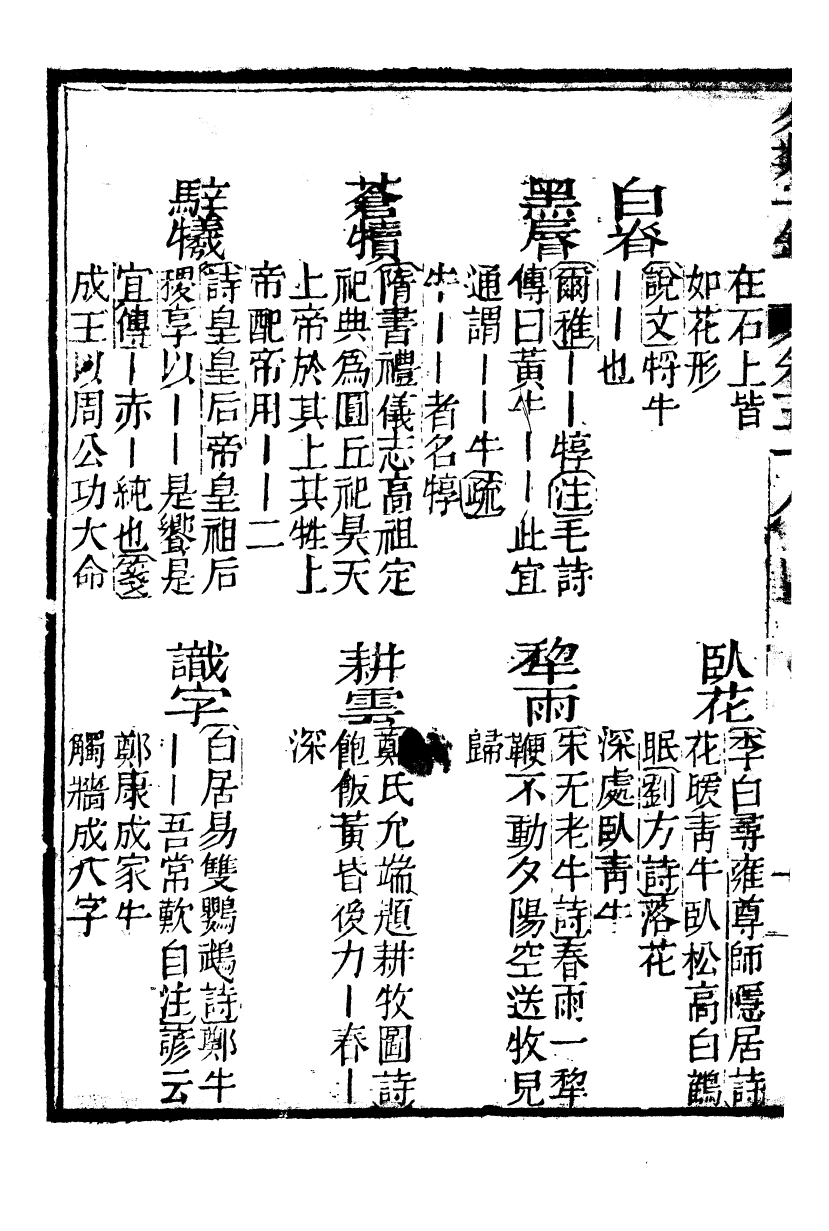 在石上皆
如花形
白脊
說文㸹牛
｜｜也
黑脣
爾雅｜｜犉注毛詩
傳曰黃牛｜｜此宜
通謂｜｜牛疏
牛｜｜者名犉
蒼犢
隋書禮儀志高祖定
祀典爲圓丘祀昊天
上帝於其上其牲上
帝配帝用｜｜二
騂犧
詩皇皇后帝皇祖后
稷享以｜｜是饗是
宜傳｜赤｜純也箋
成王以周公功大命
臥花
李白尋雍尊師隱居詩
花暖青牛臥松高白鶴
眠劉方詩落花
深處臥青牛
犂雨
宋无老牛詩春雨一犂
鞭不動夕陽空送牧兒
歸
耕雲
鄭氏允端題耕牧圖詩
飽飯黃昏後力｜春｜
深
識字
白居易雙鸚鵡詩鄭牛
｜｜吾常歎自注諺云
鄭康成家牛
觸牆成八字